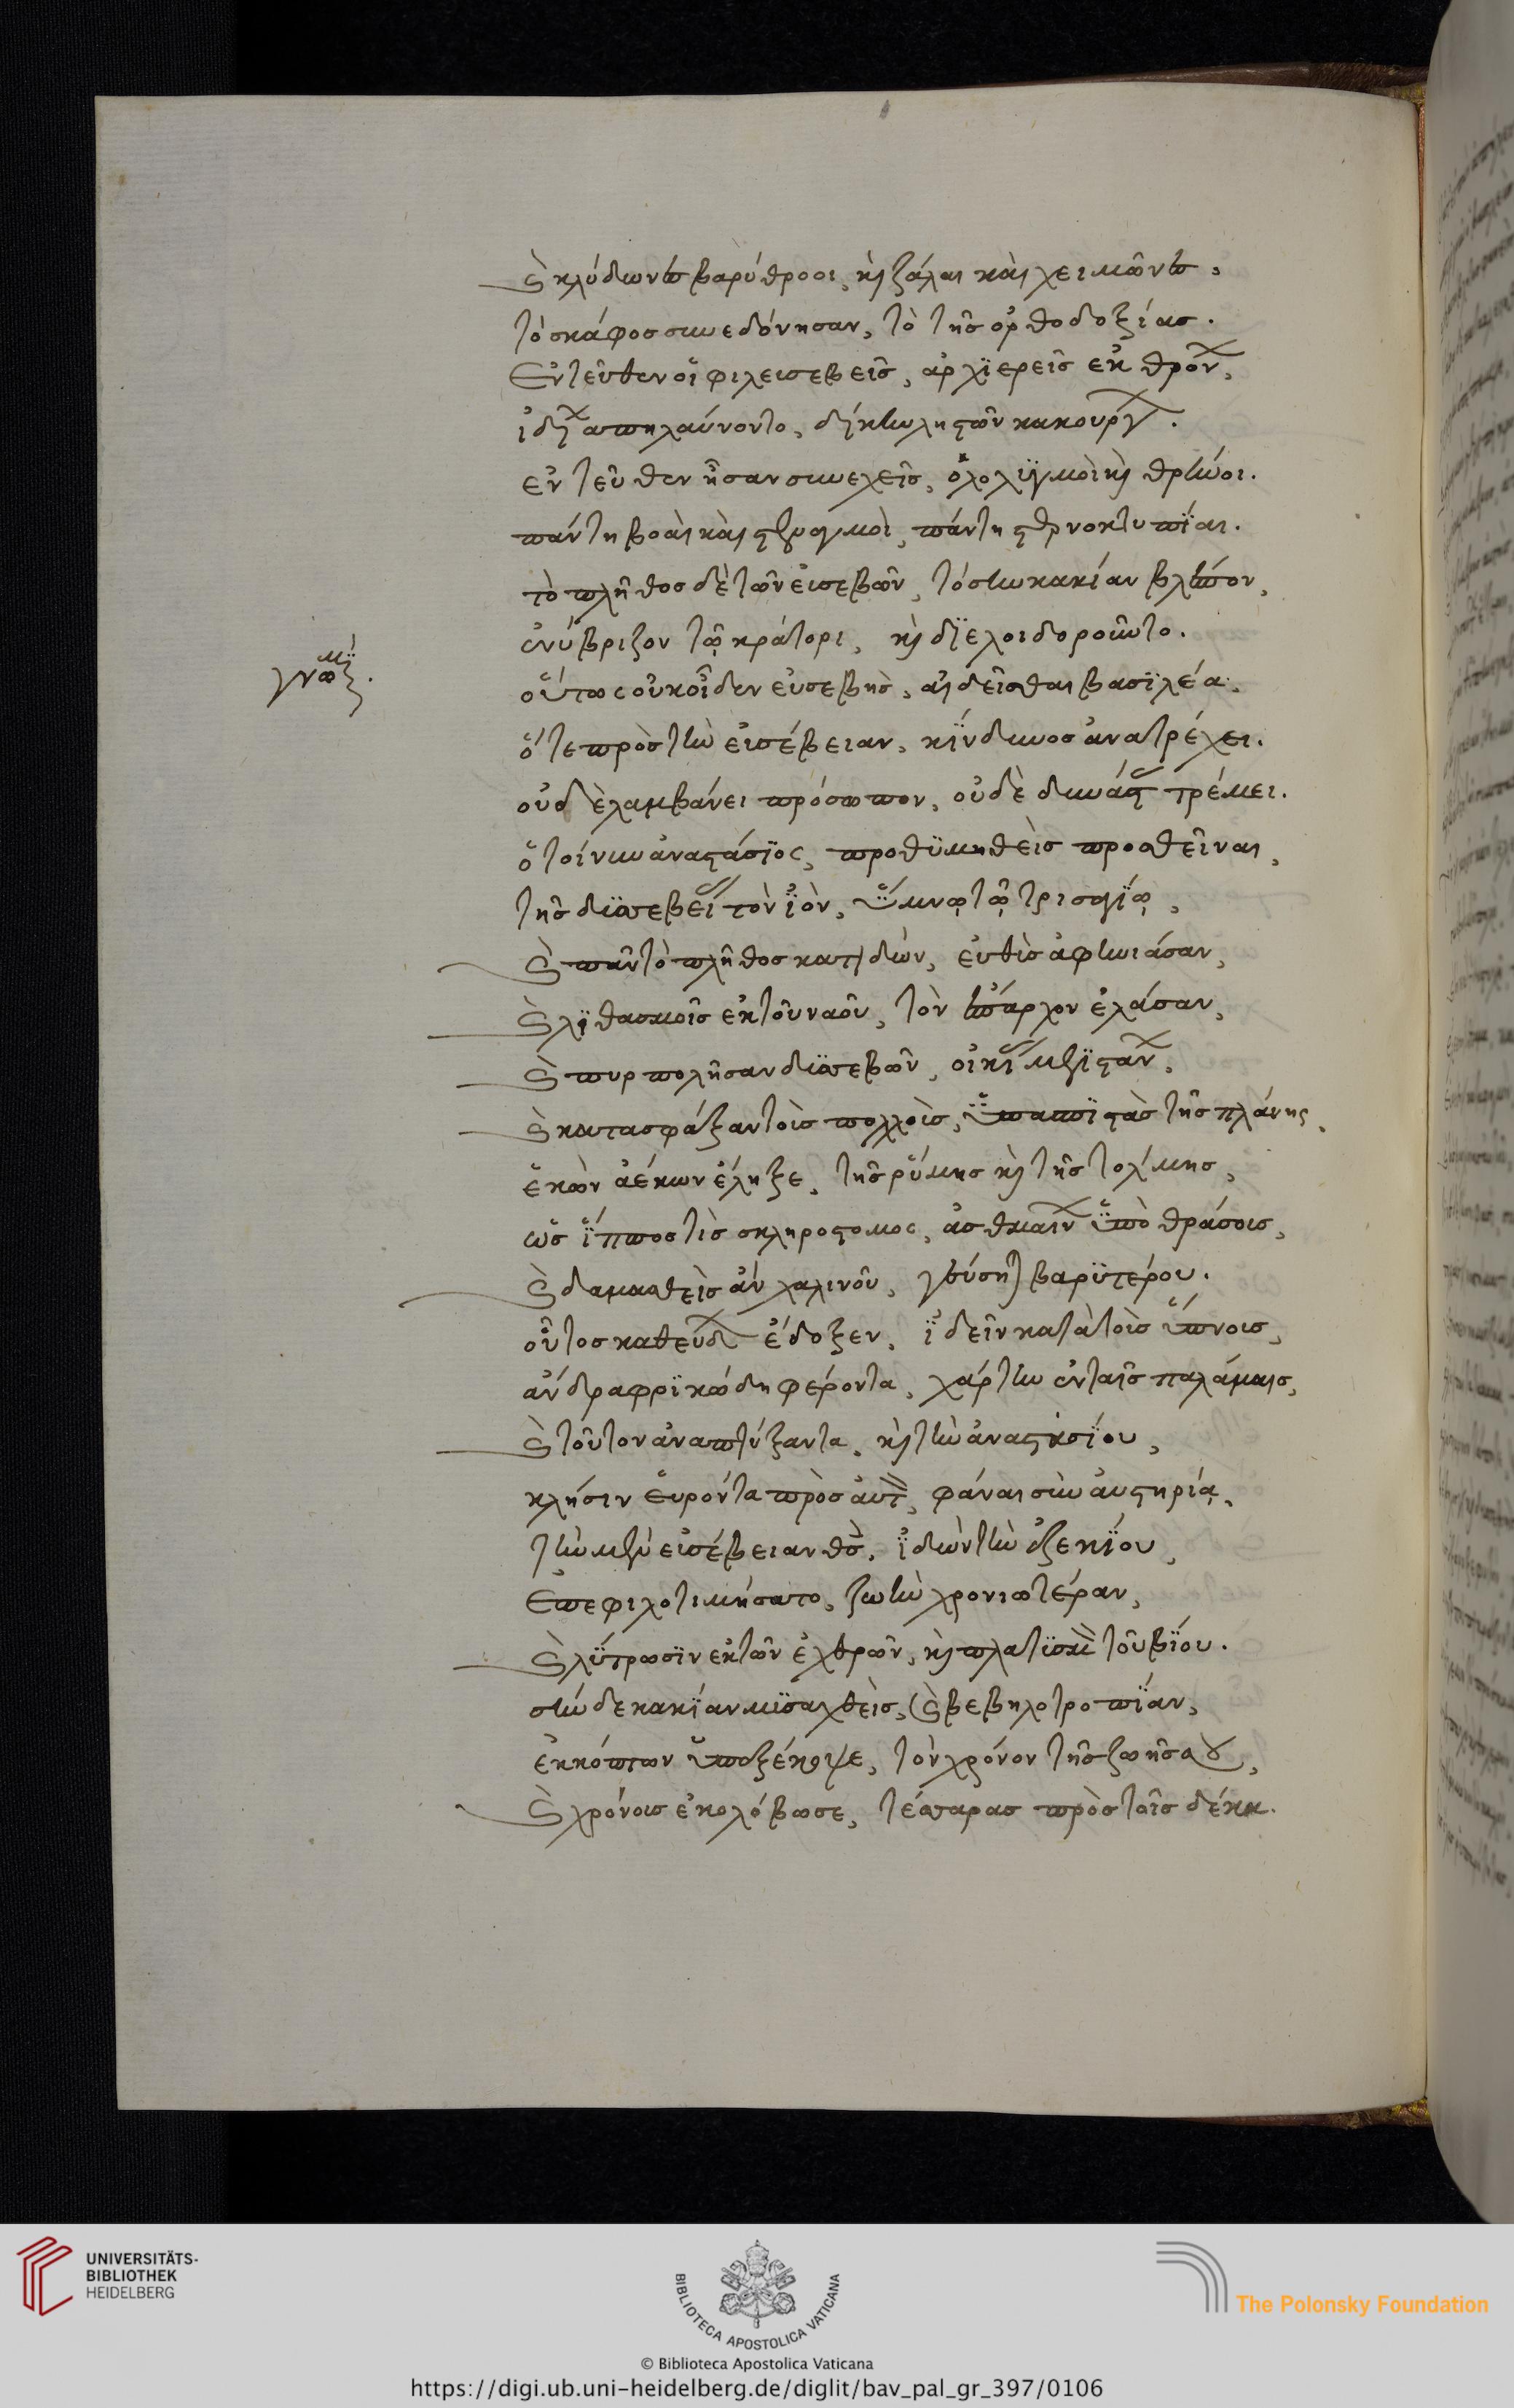 καὶ κλύδωνες βαρύθροοι, καὶ ζάλαι καὶ χειμῶνες,
τὸ σκάφος συνεδόνησαν, τὸ τῆς ὀρθοδοξίας.
Ἐντεῦθεν οἱ φιλευσεβεῖς, ἀρχϊερεῖς ἐκ θρόνων,
ἰδίων ἀπηλαύνοντο, δίκην λῃστῶν κακούργων.
ἐντεῦθεν ἦσαν συνεχεῖς, ὀλολυγμοὶ καὶ θρῆνοι.
πάντη βοαὶ καὶ στεναγμοὶ, πάντη στερνοκτυπΐαι.
τὸ πλῆθος δὲ τῶν εὐσεβῶν, τόσην κακίαν βλέπον,
ἐνύβριζον τῷ κράτορι, καὶ διελοιδοροῦντο.
γνώμη
οὕτως οὐκ οἶδεν εὐσεβὴς, αἰδεῖσθαι βασϊλέα,
ὅτε πρὸς τὴν εὐσέβειαν, κίνδυνος ἀνατρέχει.
οὐδὲ λαμβάνει πρόσωπον, οὐδὲ δυνάστας τρέμει.
ὁ τοίνυν ἀναστάσϊος, προθυμηθεὶς προσθεῖναι,
τῆς δυσσεβείας τὸν ἰὸν, ὕμνῳ τῷ τρισαγίῳ,
καὶ πᾶν τὸ πλῆθος κατιδὼν, εὐθὺς ἀφηνιάσαν,
καὶ λιθασμοῖς ἐκ τοῦ ναοῦ, τὸν ἔπαρχον ἐλάσαν,
καὶ πυρπολῆσαν δυσσεβῶν, οἰκίας μεγιστάνων,
καὶ κατασφάξαν τοὺς πολλοὺς, ὑπασπιστὰς τῆς πλάνης,
ἑκὼν ἀέκων ἔληξε, τῆς ῥύμης καὶ τῆς τόλμης,
ὡς ἵππος τὶς σκληρόστομος, ἀσθμαίνων ὑπὸ θράσους,
καὶ δαμασθεὶς ἀν χαλινοῦ, γεύσηται βαρυτέρου.
οὗτος καθεύδων ἔδοξεν, ἰδεῖν κατὰ τοὺς ὕπνους,
ἄνδρα φρικώδη φέροντα, χάρτην ἐν ταῖς παλάμαις,
καὶ τοῦτον ἀναπτύξαντα, καὶ τὴν ἀναστασίου,
κλῆσιν εὑρόντα πρὸς αὐτὸν, φάναι σὺν αὐστηρίᾳ,
τὴν μὲν εὐσέβειαν θεὸς, ἰδὼν τὴν ἐζεκίου,
Ἐπεφιλοτιμήσατο, ζωὴν χρονιωτέραν,
καὶ λύτρωσϊν ἐκ τῶν ἐχθρῶν, καὶ πλατυσμὸν τοῦ βίου.
σὴν δὲ κακίαν μυσαχθεὶς, καὶ βεβηλοτροπίαν,
ἐκκόπτων ὑπεξέκοψε, τὸν χρόνον τῆς ζωῆς σου,
καὶ χρόνους ἐκολόβωσε, τέσσαρας πρὸς τοῖς δέκα.
UNIVERSITÄTS-
BIBLIOTHEK
HEIDELBERG
BIBLIOTECA APOSTOLICA VATICANA
The Polonsky Foundation
© Biblioteca Apostolica Vaticana
https://digi.ub.uni-heidelberg.de/diglit/bav_pal_gr_397/0106